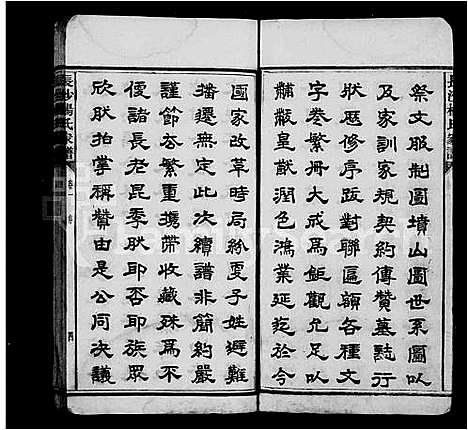 祭文服制圖墳山圖世系圖以
及家訓家規契約傳贊墓誌行
狀歷修序跋對聯匾額各種文
字卷繁冊大成爲鉅觀允足以
黼黻皇猷潤色鴻業延茲於今
國家改革時局紛更子姓避難
播遷無定此次續譜非簡約嚴
謹節去繁重攜帶收藏殊爲不
便諸長老昆季肰耶否耶族眾
欣肰拍掌稱贊由是公同决議
長沙楊氏家譜
卷一
四